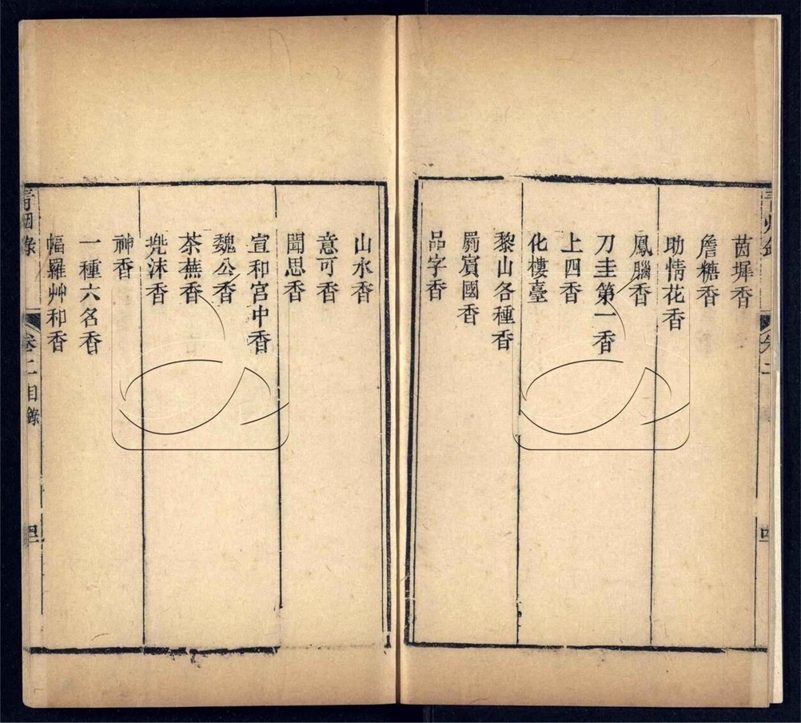 茵墀香
詹糖香
助情花香
鳳腦香
刀圭第一香
上四香
化樓臺
黎山各種香
罽賓國香
品字香
山水香
意可香
聞思香
宣和宮中香
魏公香
荼蕪香
兜沫香
神香
一種六名香
幅羅艸和香
青烟錄
卷二目錄